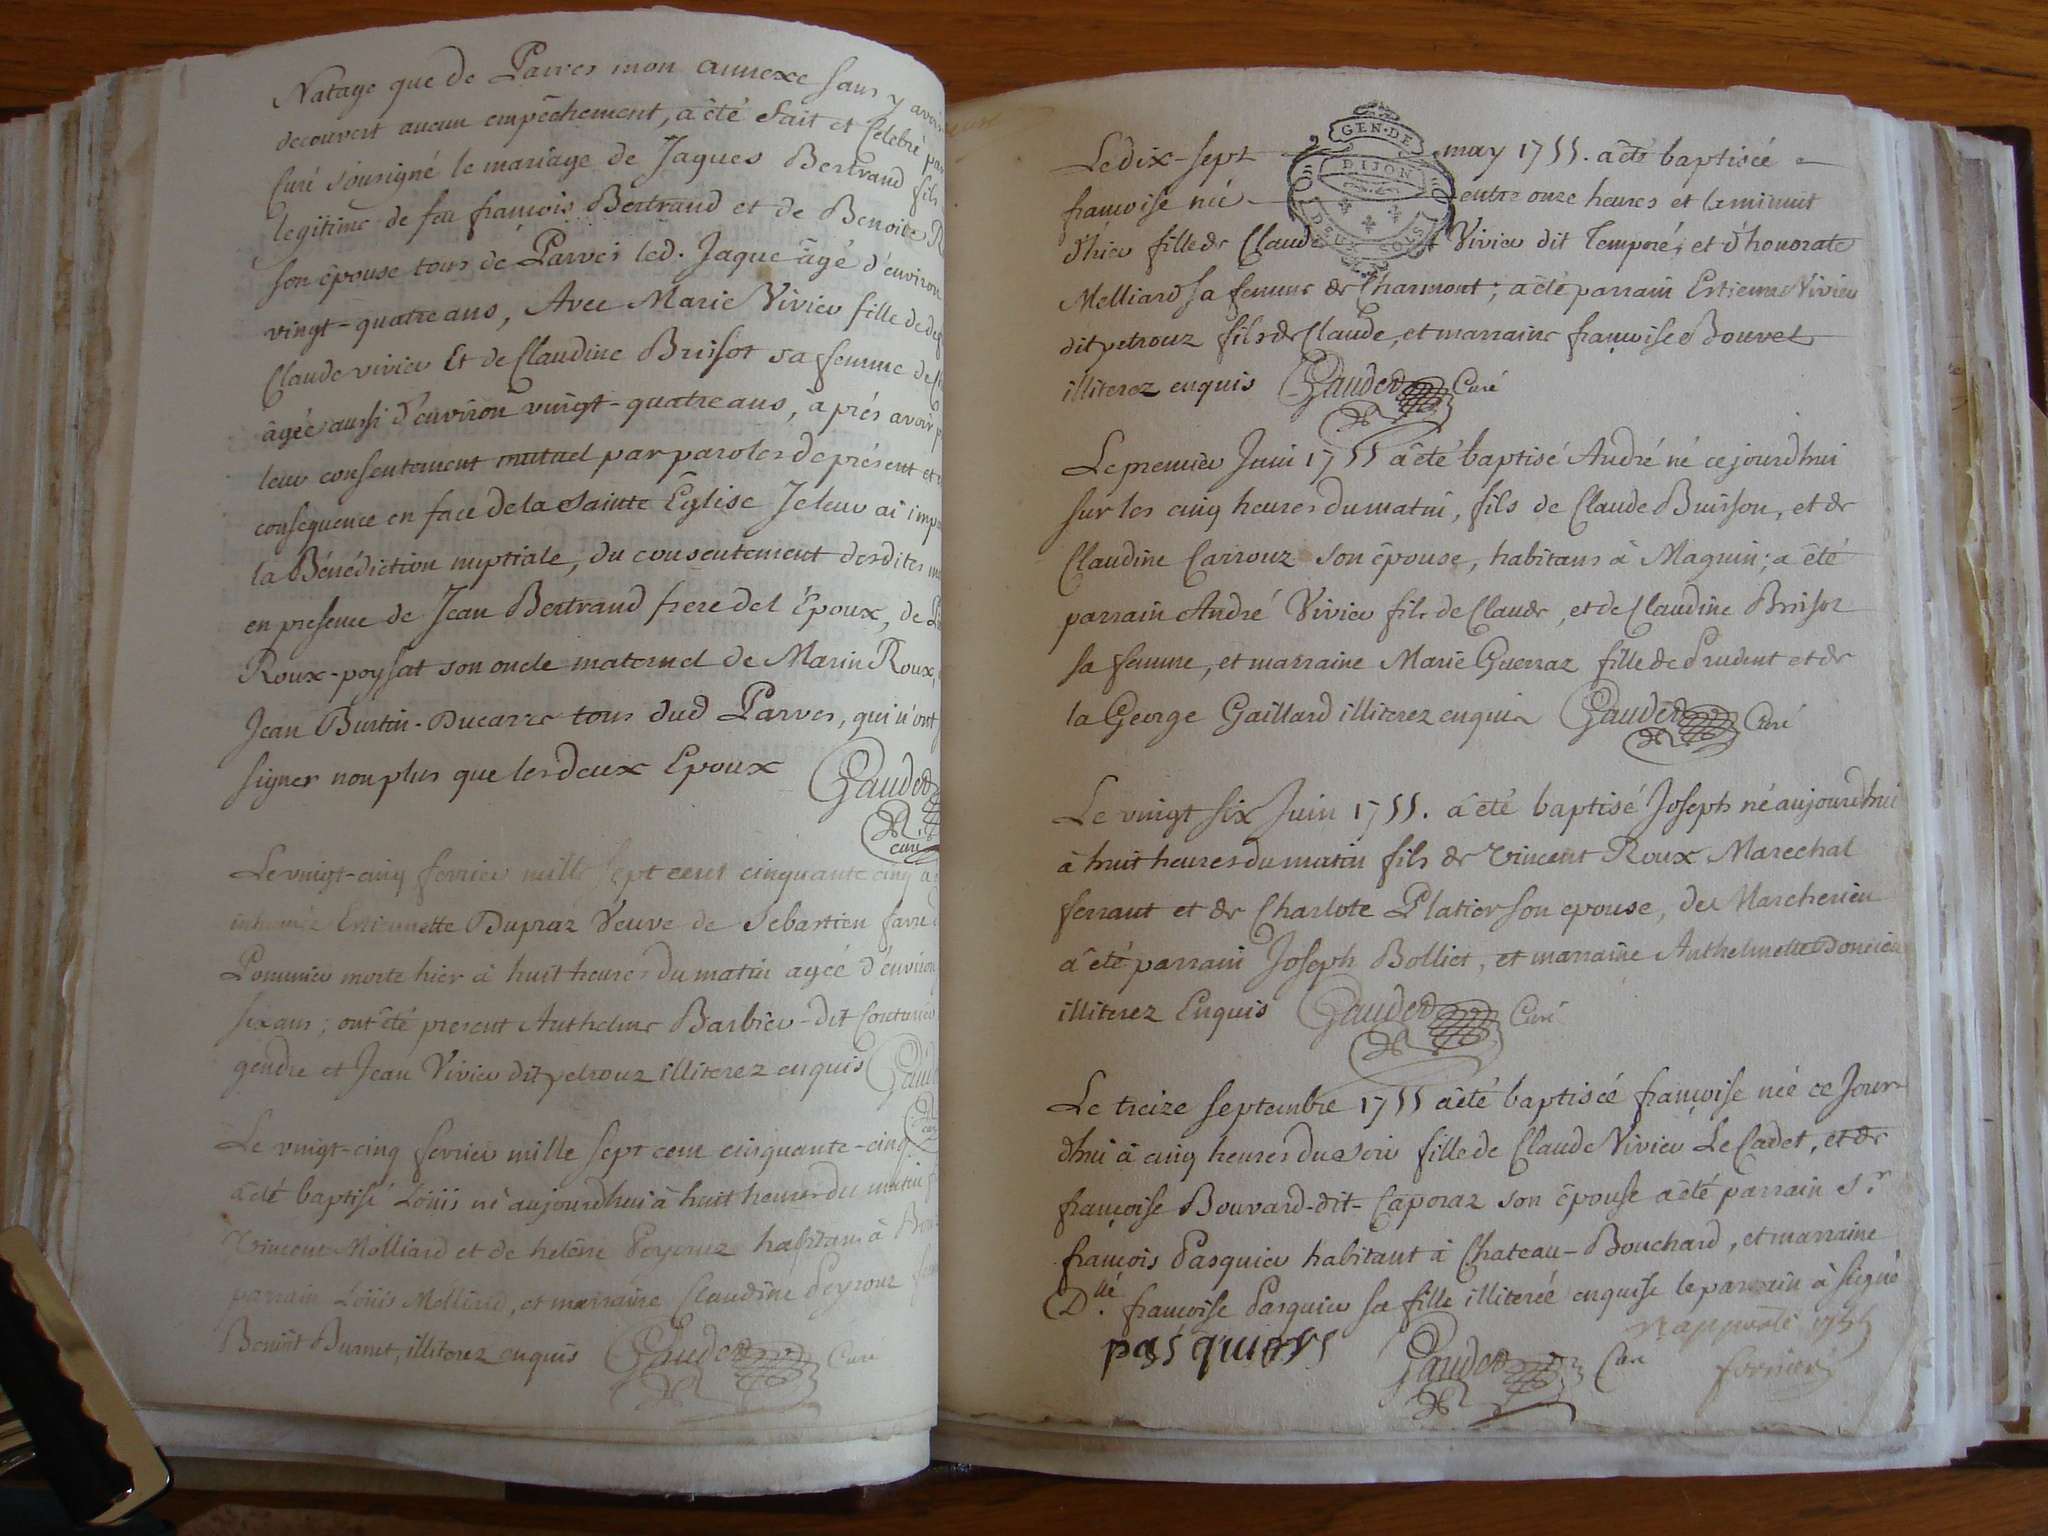 Natage que de Parves mon annexe sans y avoir
decouvert aucun empêchement, a été fait et Célébré par
Curé sousigné le mariage de Jaques Bertrand fils
legitime de feu françois Bertrand et de Benoite
son épouse tous de Parves led. Jaque âgé d'environ
vingt-quatre ans, Avec Marie Vivier fille de
Claude vivier Et de Claudine Brissot sa femme de
âgée aussi d'environ vingt-quatre ans, âprés avoir
leur consentement mutuel par paroles de présent et
consequence en face de la Sainte Eglise Je leur ai
la Bénédiction nuptiale, du consentement desdites
en presence de Jean Bertrand frere del Epoux, de
Roux-poysat son oncle maternel de Marin Roux,
Jean Burtin-Ducarre tous dud Parves, qui n'ont
signer non plus que les deux Epoux Gaudet
curé
Le vingt-cinq fevrier mille sept cent cinquante cinq a
inhumée Estiennette Dupraz Veuve de Sebastien favre
Pommier morte hier à huit heures du matin agée d'environ
six ans, ont été present Anthelme Barbier-dit Couturier
gendre et Jean Vivier dit petrouz illiterez enquis
Le vingt-cinq fevrier mille sept cent cinquante-cinq
a été baptisé Loüis né aujourdhui à huit heures du matin
Vincent Melliard et de helène Peyrouz habitans à
parrain Loüis Melliard, et marraine Claudine Peyrouz
Benoit Burnet, illiterez enquis Gaudet Curé
GEN·DE
DIJON
DEUX SOLS
Le dix-sept may 1755. a été baptiséé
françoise née entre onze heures et le minuit
d'hier fille de Claude Vivier dit Temporé, et d'honorate
Melliard sa femme de Charmont; a été parrain Estienne Vivier
dit petrouz fils de Claude, et marraine françoise Bouvet
illiterez enquis Gaudet Curé
Le premier Juin 1755 a été baptisé André né ce jourdhui
sur les cinq heures du matin, fils de Claude Buisson, et de
Claudine Carrouz son épouse, habitans à Magnin; a été
parrain André Vivier fils de Claude, et de Claudine Brissot
sa femme, et marraine Marie Guerraz fille de Prudent et de
la George Gaillard illiterez enquis Gaudet Curé
Le vingt six Juin 1755. a été baptisé Joseph né aujourdhui
à huit heures du matin fils de Vincent Roux Marechal
ferrant et de Charlote Platier son epouse, de Marcherieu
a été parrain Joseph Bolliet, et marraine Anthelmette
illiterez Enquis Gaudet Curé
Le treize septembre 1755 a été baptiséé françoise née ce Jour
dhui à cinq heures du soir fille de Claude Vivier Le Cadet, et de
françoise Bouvard-dit-Caporaz son épouse a été parrain Sr.
françois Pasquier habitant à Chateau-Bouchard, et marraine
Dlle. françoise Pasquier sa fille illiterée enquise le parrain à signé
pasquier Gaudet Curé